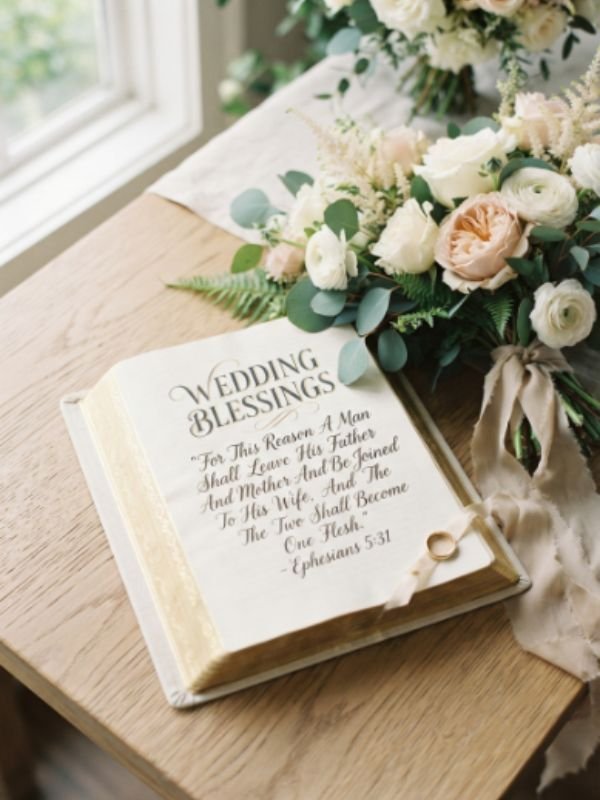 WEDDING
BLESSINGS
"For This Reason A Man
Shall Leave His Father
And Mother And Be Joined
To His Wife, And The
The Two Shall Become
One Flesh."
- Ephesians 5:31